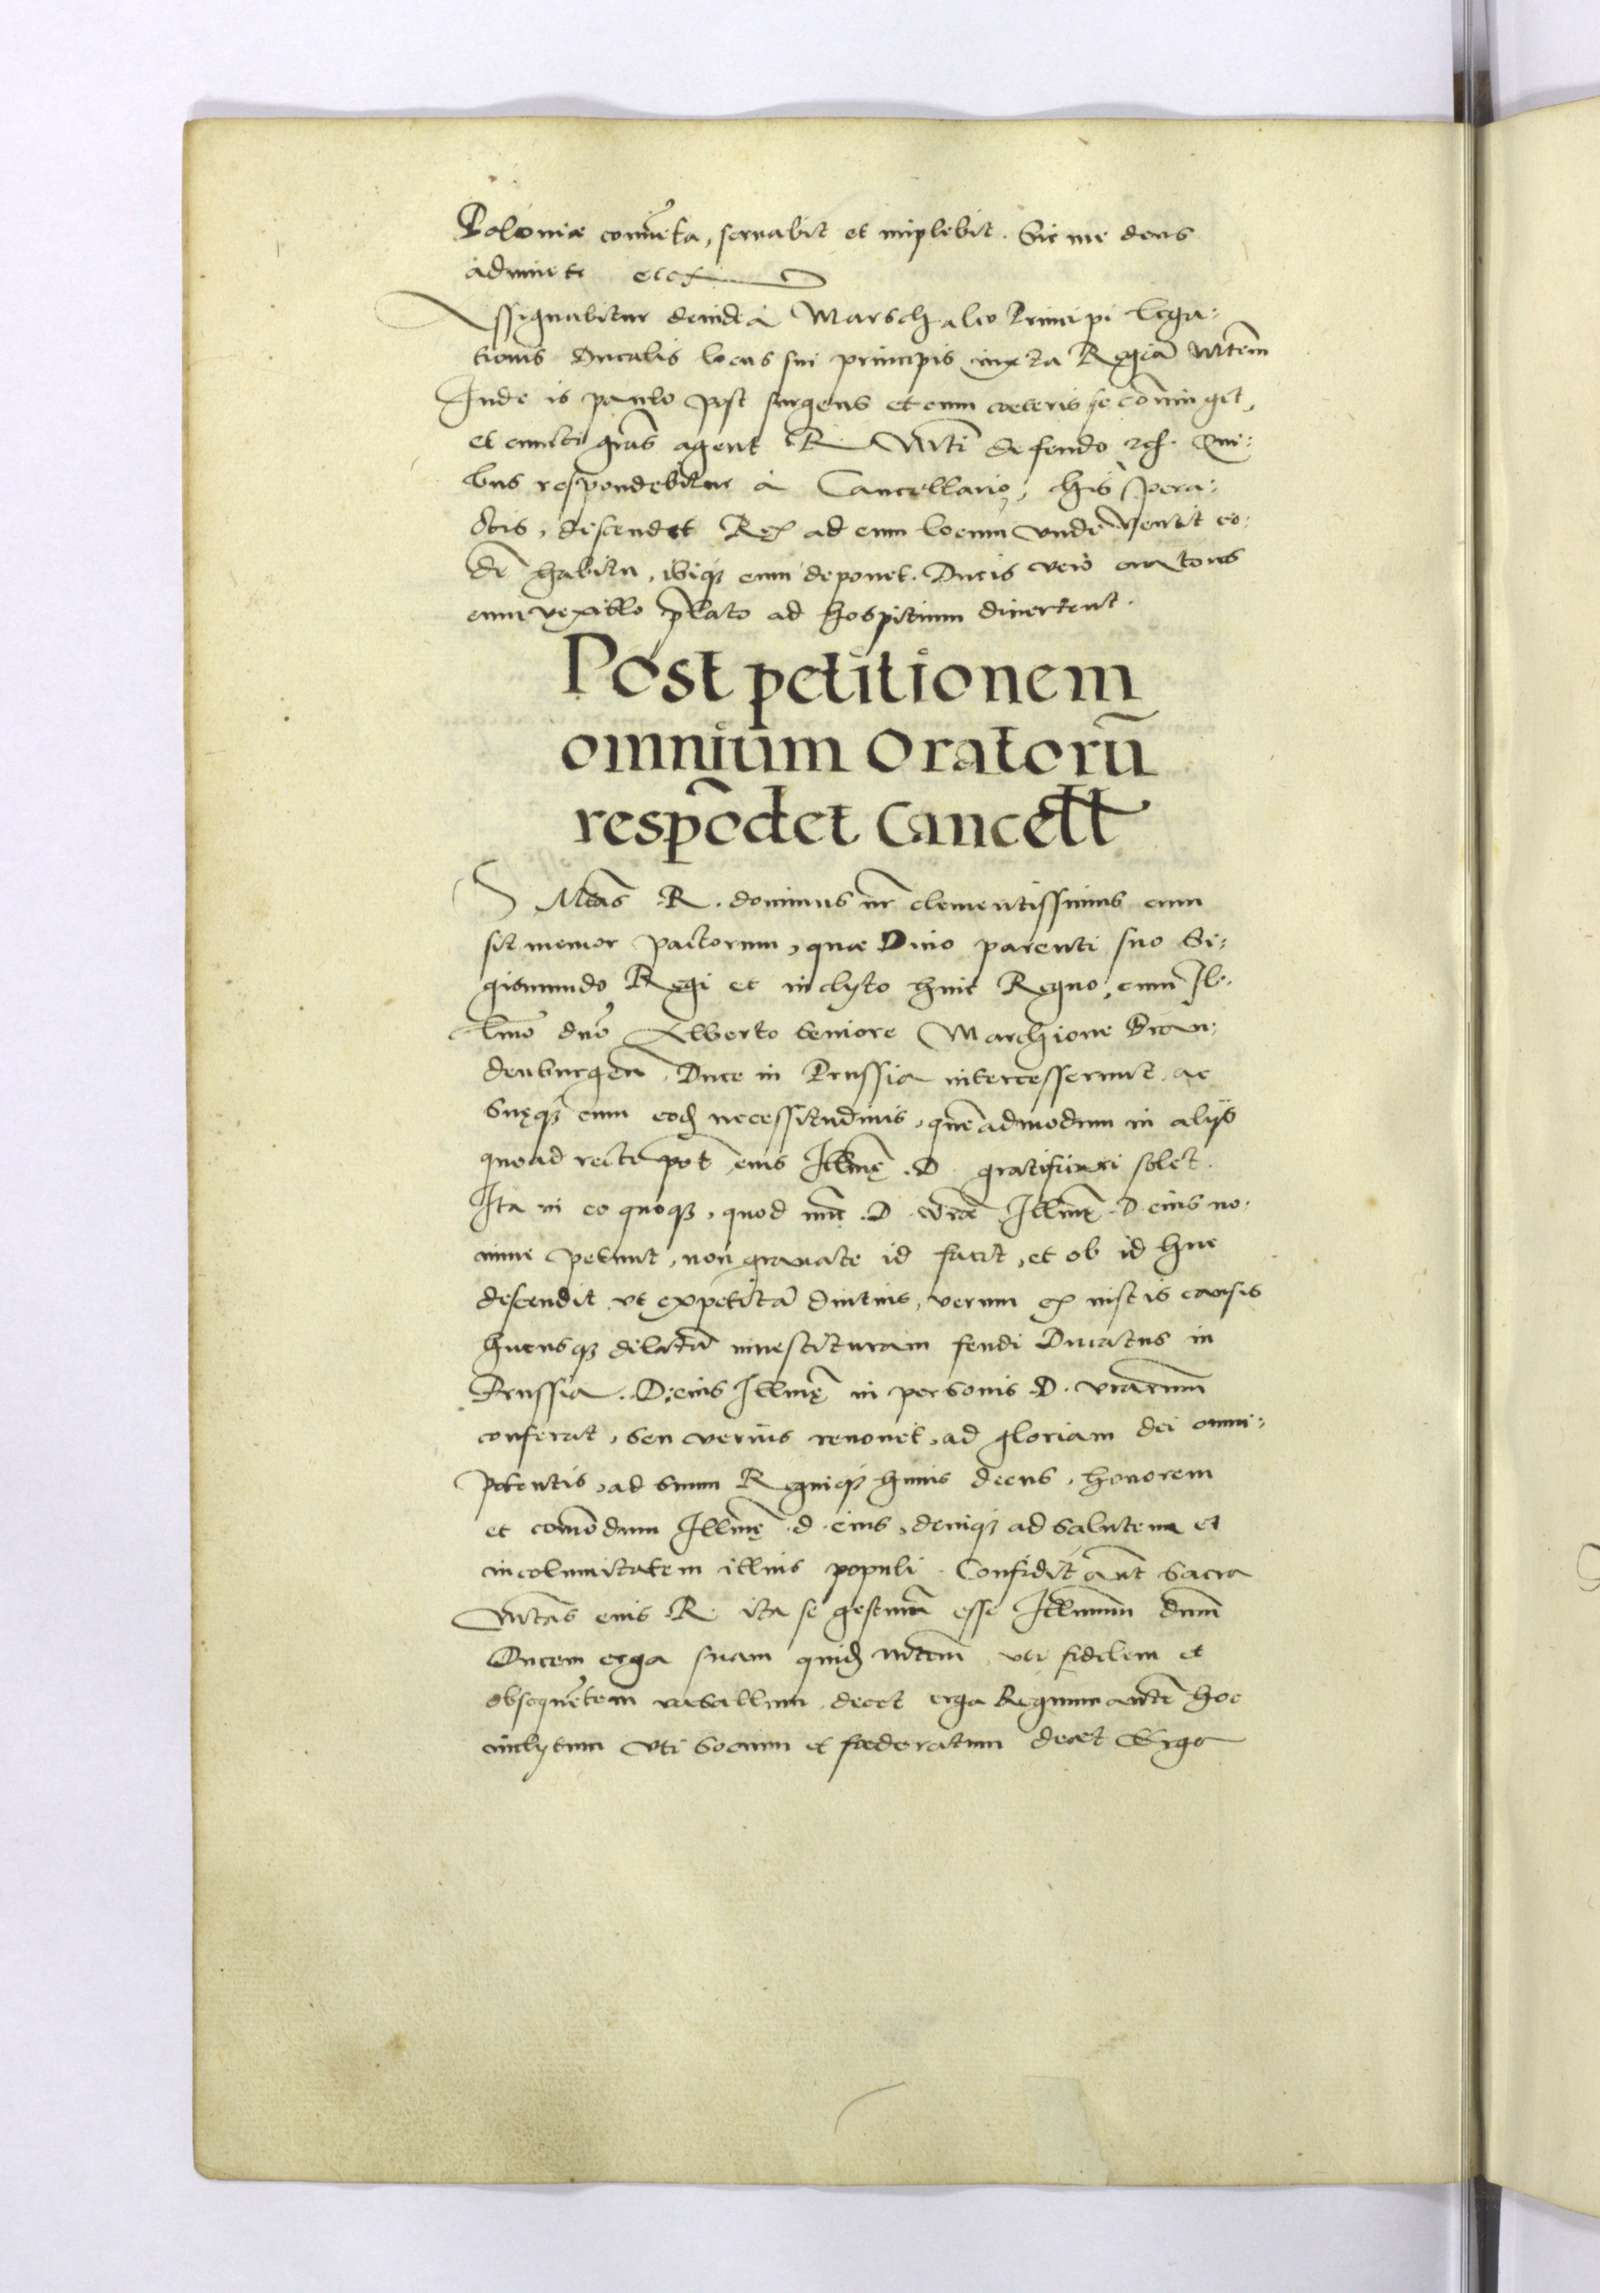 Poloniæ conuẽta, seruabit et implebit. Sic me deus
adiuuet etc
Assignabitur deinde à Marschalco Principi lega:
tionis Ducalis locus sui principis iuxta Regiã Mtẽm
Inde is paulo post surgens et cum cæteris se coniungit,
et cuncti grãs agent R Mti de feudo Qui:
bus respondebitur à Cancellario, his pera:
ctis, descendet Rex ad eum locum vnde venit eo:
dẽ habitu, ibiq; eum deponet. Ducis verò oratores
cum vexillo p̃lato ad hospitium diuertent.
Post petitionem
omnium Oratorũ
respõdet Cancell
S Mtãs R. dominus nr̃ clementissimus cum
sit memor pactorum, quæ Diuo parenti suo Si:
gismundo Regi et inclyto huic Regno, cum Il:
lmo dno Alberto seniore Marchione Bran:
denburgen̄ Duce in Prussia intercesserunt, ac
suęq; cum eod necessitudinis, quẽadmodum in alijs
quoad recte pot eius Illmę .D. gratificari solet.
Ita in eo quoq;, quod nũc .D. vræ Illmę .D. eius no:
mine petunt, non grauate id facit, et ob id huc
descendit vt expetitã diutius, verum ex iustis causis
hucusq; dilatã inuestituram feudi Ducatus in
Prussia. D. eius Illmę in personis .D. vrarum
conferat, seu verius renouet, ad gloriam dei omni:
potentis, ad suum Regniq; huius decus, honorem
et com̃odum Illmę .d. eius, deniq; ad salutem et
incolumitatem illius populi. Confidit aũt Sacra
Mtãs eius R. ita se gesturũ esse Illmum dnum
Ducem erga suam quid Mtem vti fidelem et
obsequẽtem vasallum decet erga Regnum autẽ hoc
inclytum vti socium et fœderatum decet Ergo